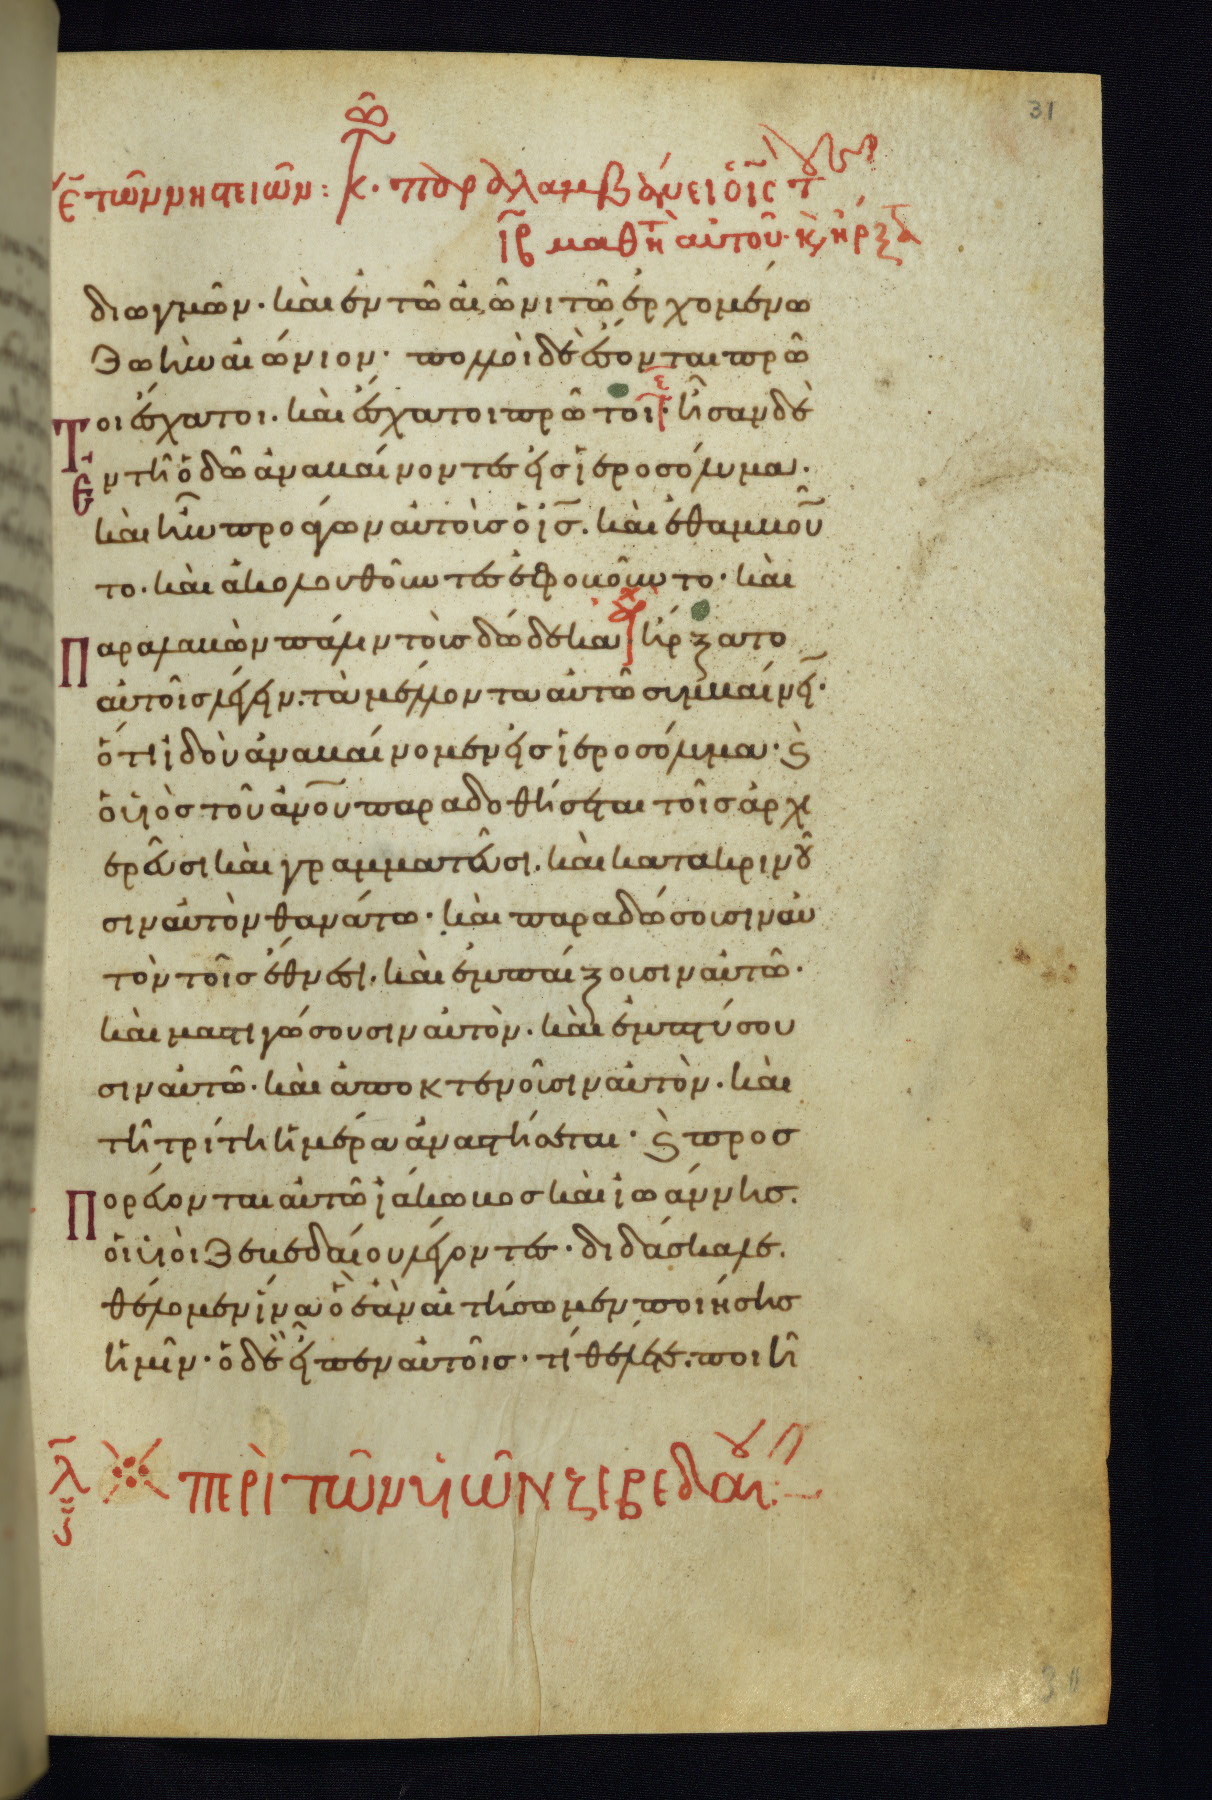 31
ε̄ τῶν νηστειῶν: κ̅. παραλαμβάνει ὁ ῑς̄ τοὺς
ῑβ̄ μαθητ αὐτοῦ. κ̀ ἤρξατ
διωγμῶν· καὶ ἐν τῶ αἰῶνι τῶ ἐρχομένω
ζωὴν αἰώνιον· πολλοὶ δὲ ἔσονται πρῶ
τοι ἔσχατοι. καὶ ἔσχατοι πρῶτοι· ἦσαν δὲ
ἐν τῆ ὁδῶ ἀναβαίνοντες εἰς ἱεροσόλυμα.
καὶ ἦν προάγων αὐτοὺς ὁ ῑς̄. καὶ ἐθαμβοῦν
το· καὶ ἀκολουθοῦντες ἐφοβοῦντο· καὶ
Παραλαβὼν πάλιν τοὺς δώδεκα ἤρξατο
αὐτοῖς λέγειν. τὰ μέλλοντα αὐτῶ συμβαίνειν·
ὅτι ἰδοὺ ἀναβαίνομεν εἰς ἱεροσόλυμα· ϗ
ὁ υἱὸς τοῦ ἀνο̅υ παραδοθήσεται τοῖς ἀρχι
ερεῦσι καὶ γραμματεῦσι. καὶ κατακρινοῦ
σιν αὐτὸν θανάτω· καὶ παραδώσουσιν αὐ
τὸν τοῖς ἔθνεσι. καὶ ἐμπαίξουσιν αὐτῶ·
καὶ μαστιγώσουσιν αὐτὸν. καὶ ἐμπτύσου
σιν αὐτῶ· καὶ ἀποκτενοῦσιν αὐτὸν. καὶ
τῆ τρίτη ἡμέρα ἀναστήσεται· ϗ προσ
Πορεύονται αὐτῶ ἰάκωβος καὶ ἰωάννης.
οἱ υἱοὶ ζεβεδαίου λέγοντες· διδάσκαλε.
θέλομεν ἵνα ὃ ἐὰν αἰτήσωμεν ποιήσης
ἡμῖν· ὁ δὲ εἶπεν αὐτοῖς· τί θέλετε. ποιῆ
λ̄ περὶ τῶν υἱῶν ζεβεδαίου